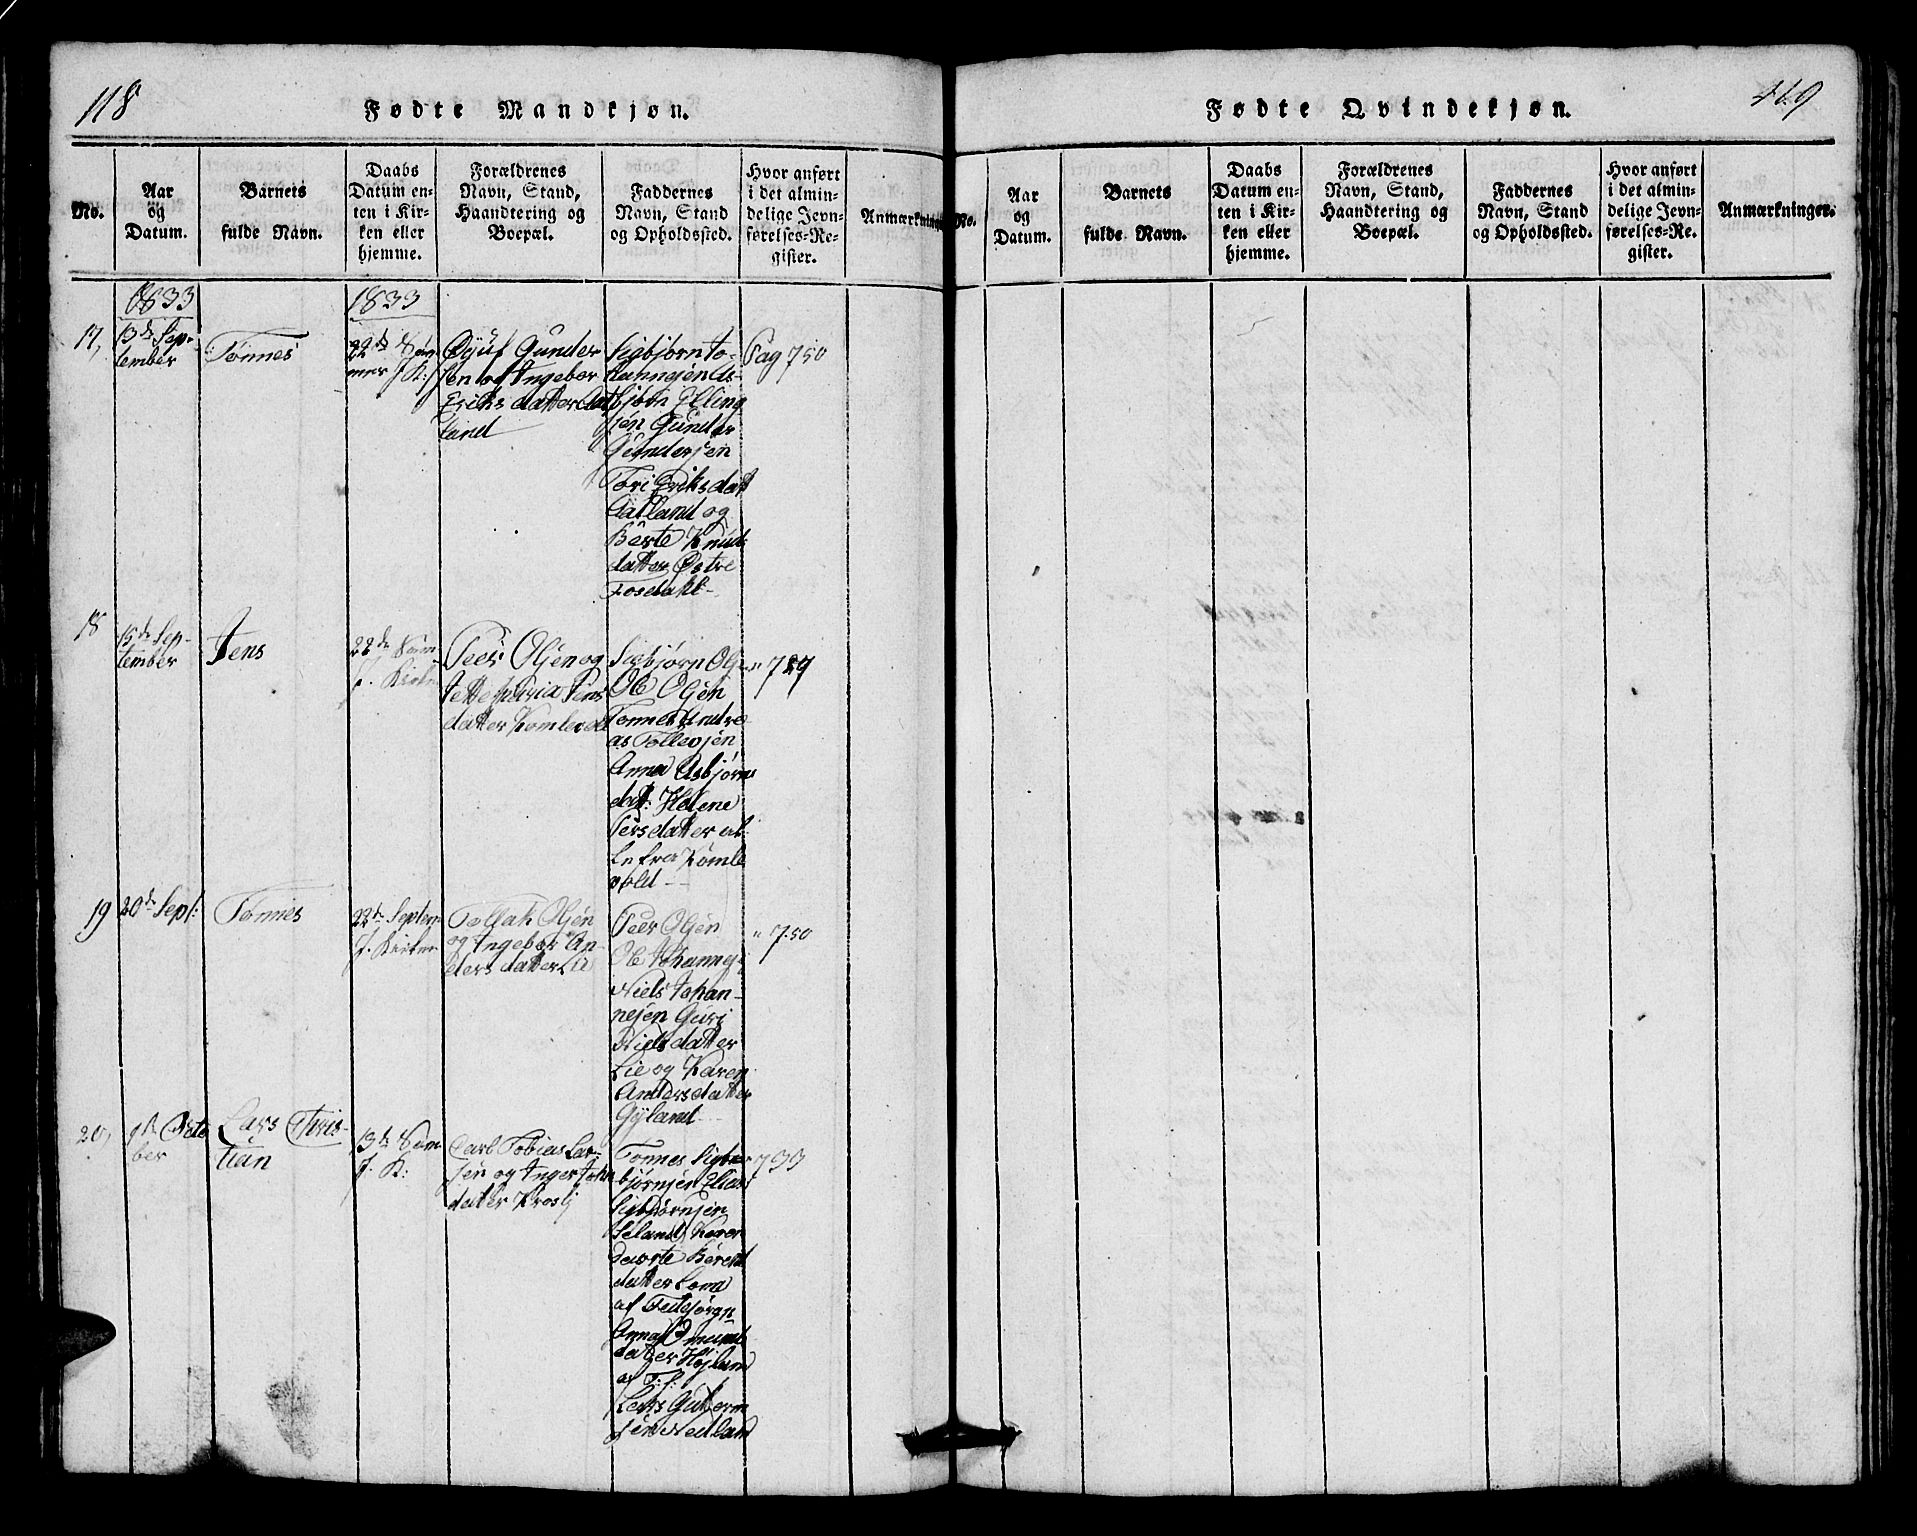 118
Fødte Mandkjøn.
No.
Aar
og
Datum.
Barnets
fulde Navn.
Daabs
Datum en-
ten i Kir-
ken eller
hjemme.
Forældrenes
Navn, Stand,
Haandtering og
Boepæl.
Faddernes
Navn, Stand
og Opholdssted.
Hvor anført
i det almin-
delige Jevn-
førelses-Re-
gister.
Anmærkning
1833
1833
17,
13de Sep-
tember
Tønnes
22de
K:
Gunder
sen og Ingebor
Eriksdatter
land
Sigbjørn Jo-
hannesen As-
bjørn Elling
sen Gunder
Gundersen
Tori Eriksdatt
Aatland og
Berte Knuds
datter Østre
Fosdahl
Pag 750
18
15de Sep-
tember
Jens
22de Sam
J. Kirken
Peer Olsen og
Jette Maria Jens
datter
Sigbjørn Ols
Ole Olsen
Tønnes Andre
as Tollevsen
Anna Asbjørns
datt: Helene
Persdatter al-
le fra Komle
vold
" 729
19
20de Sept:
Tønnes
22de Septem
J. Kirken
Tollak Olsen
og Ingebor An-
dersdatter Lie
Peer Olsen
Ole Johannes
Niels Johan-
nesen Guri
Nielsdatter
Lie og Karen
Andersdatter
Gyland
" 750
20,
9de Octo
ber
Lars Chris-
tian
13de Sam
J. K:
Carl Tobias Lar-
sen og Inger John
datter
Tønnes Sig
bjørnsen Elias
Sigbjørnsen
Seland, Karen
Dorte Berent
datter Lone
af
Anna Omund
datter Højland
af F: S:
Lars Guttorm
sen Nedland
" 733
119
Fødte Qvindekjøn.
No.
Aar
og
Datum.
Barnets
fulde Navn.
Daabs
Datum en-
ten i Kir-
ken eller
hjemme.
Forældrenes
Navn, Stand,
Haandtering og
Boepæl.
Faddernes
Navn, Stand
og Opholdssted.
Hvor anført
i det almin-
delige Jevn-
førelses-Re-
gister.
Anmærkninger.